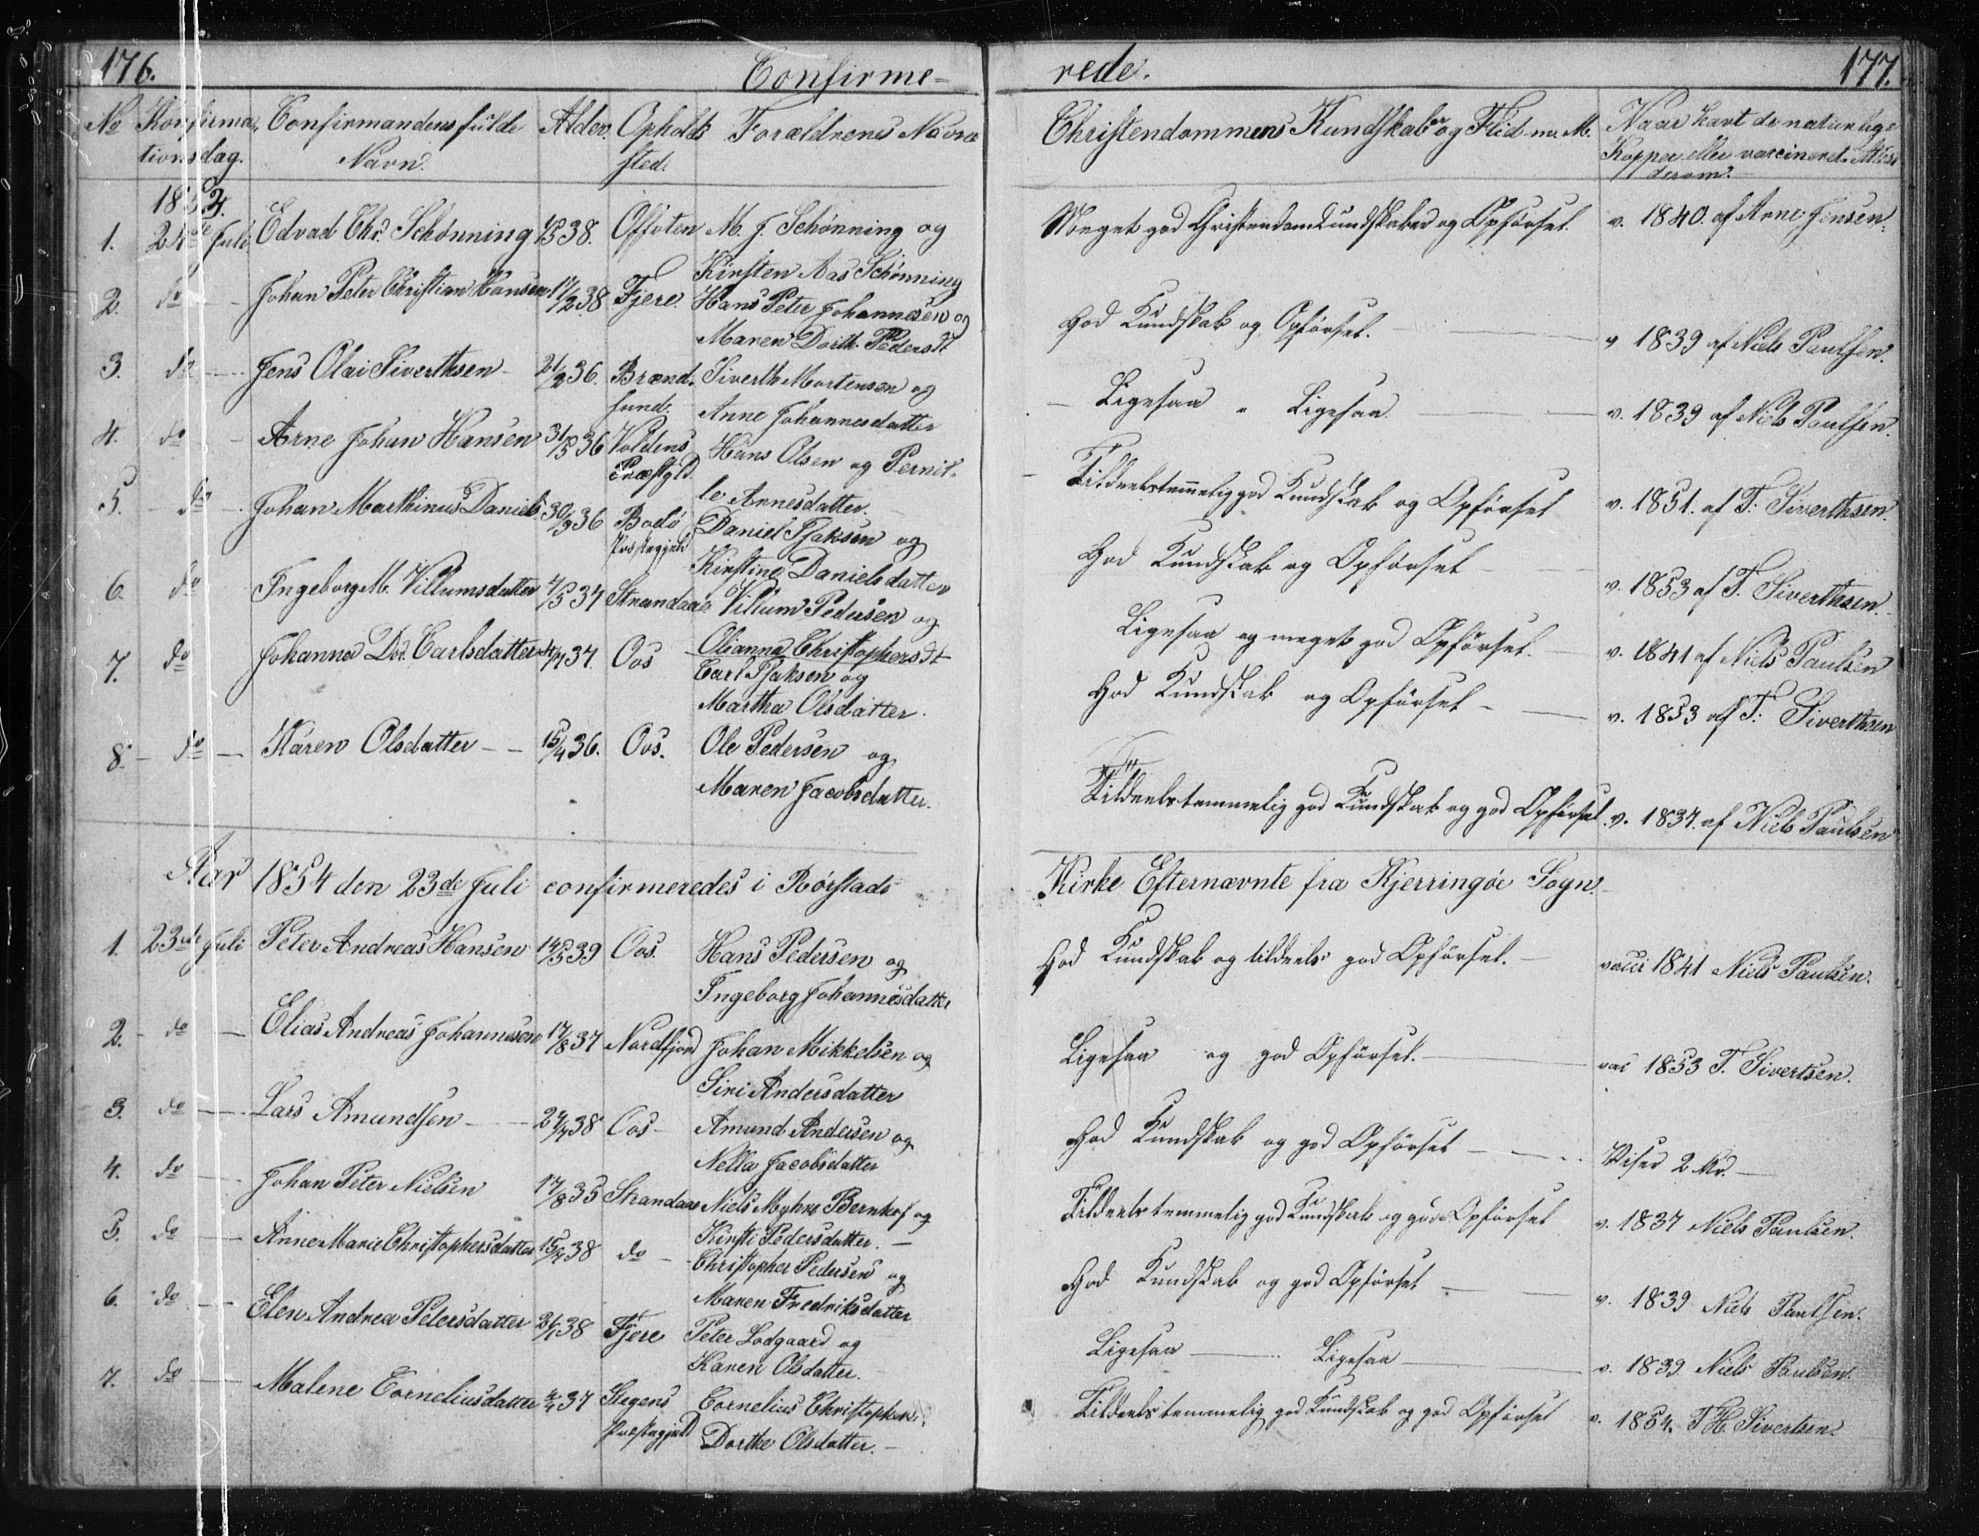 176.
Confirme-
rede.
177.
No Konfirma- Confirmandens fulde Alder. Opholds Forældrenes Navne Christendommens Kundskab og Flid m. M. Naar havt de naturlige
tionsdag. Navn. sted. Kopper eller vaccineret. Attest
derom.
1853.
1. 24de Juli Edvad Chr. Schønning 38. Offoten M. J. Schønning og Meget god Christendomskundskaber og Opførsel. v. 1840. af Arne Jensen.
Kirsten Aas Schønning
2. do Johan Peter Christian Hansen 17/2 38 Fjere. Hans Peter Johannesen og God Kundskab og Opførsel. v 1839 af Niels Paulsen.
Maren Dorth. Pedersdt
3. do Jens Olai Siverthsen 21/2 36. Brænd- Siverth Mortensen og Ligesaa " Ligesaa v. 1839 af Niels Paulsen.
sund. Anne Johannesdatter
4. do Arne Johan Hansen 31/5 36 Voldens Hans Olsen og Pernil- Tildeels temmelig god Kundskab og Opførsel v. 1851. af T. Siverthsen.
Præstgld. le Arnesdatter.
5. do Johan Marthinus Daniels 30/3 36 Bodø Daniel Isaksen og God Kundskab og Opførsel v. 1853 af T. Siverthsen.
Præstegjeld Kirstine Danielsdatter
6. do Ingeborg M. Villumsdatter 4/5 37 Strandaae Villum Pedersen og Ligesaa og meget god Opførsel. v. 1841 af Niels Paulsen
Olianna Christophersdt
7. do Johanna Do. Carlsdatter 37. Oos Carl Isaksen og God Kundskab og Opførsel v. 1853 af T. Siverthsen
Martha Olsdatter.
8. do Karen Olsdatter 15/4 36. Oos. Ole Pedersen og Tildeels temmelig god Kundskab og god Opførsel v. 1837. af Niels Paulsen
Maren Jacobsdatter.
Aar 1854 den 23de Juli confirmeredes i Rørstads Kirke Efternævnte fra Kjerringøe Sogn.
1. 23de Juli Peter Andreas Hansen 14/5 39 Oos. Hans Pedersen og God Kundskab og tildeels god Opførsel. vacci 1841 Niels Paulsen.
Ingeborg Johannesdatter
2. do Elias Andreas Johannessen 17/8 37 Nordfjord Johan Mikkelsen og Ligesaa og god Opførsel. vac 1853 T. Sivertsen.
Siri Andersdatter
3. do Lars Amundsen 24/7 38 Oos Amund Andersen og God Kundskab og god Opførsel Viser 2 Ar.
Nella Jacobsdatter
4. do Johan Peter Nielsen 17/8 35 Strandaae Niels Myhre Bernhof og Tildeels temmelig god Kundskab og god Opførsel v. 1837 Niels Paulsen.
Kirsti Pedersdatter.
5. do Anne Marie Christophersdatter 15/7 38 do Christopher Pedersen og God Kundskab og god Opførsel v. 1839. Niels Paulsen.
Maren Fredriksdatter
6. do Elen Andrea Petersdatter 21/1 38 Fjere Peter Lodgaard og Ligesaa Ligesaa v. 1839. Niels Paulsen.
Karen Olsdatter.
7. do Malene Corneliusdatter 4/4 37 Stegens Cornelius Christophers. Tildeels temmelig god Kundskab og god Opførsel v. 1854. T H. Sivertsen.
Præstegjeld Dorthe Olsdatter.